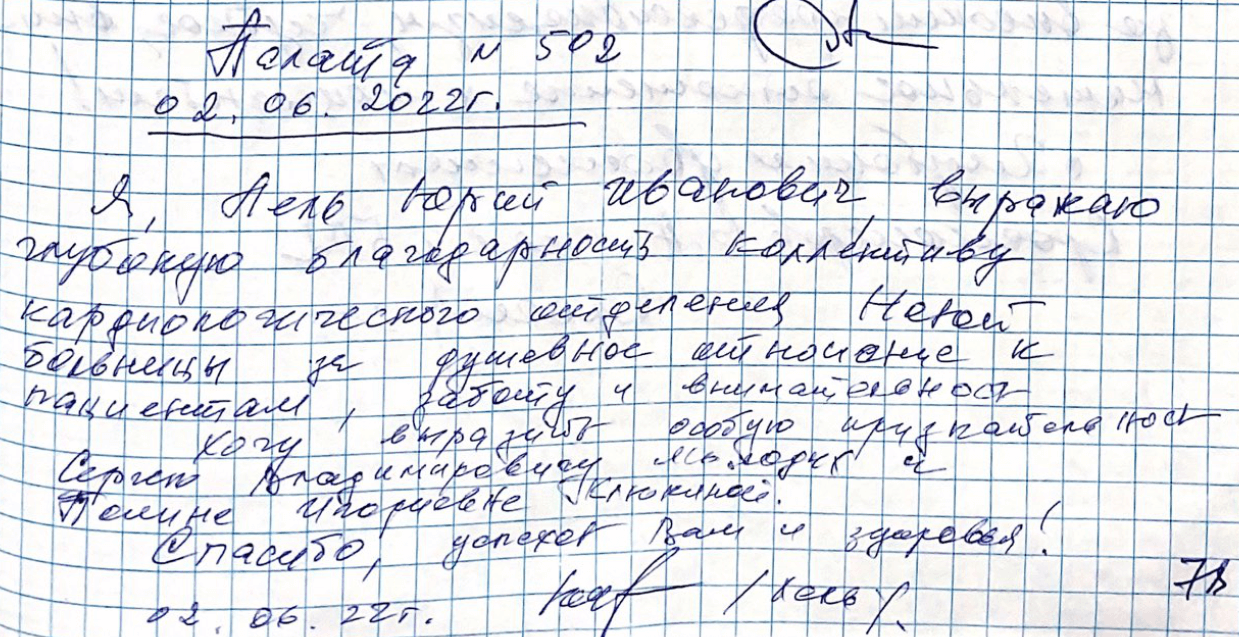 Палата N 502
02.06.2022г.
Я, Кель Юрий Иванович, выражаю
глубокую благодарность коллективу
кардиологического отделения Новой
больницы за душевное отношение к
пациентам, заботу и внимательность
Хочу выразить особую признательность
Сергею Владимировичу и
Полине Игоревне Клюкиной.
Спасибо, успехов Вам и здоровья!
02.06.22г. /Кель/.